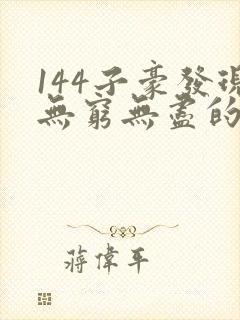 144子豪發現
無窮無盡的
蔣偉平